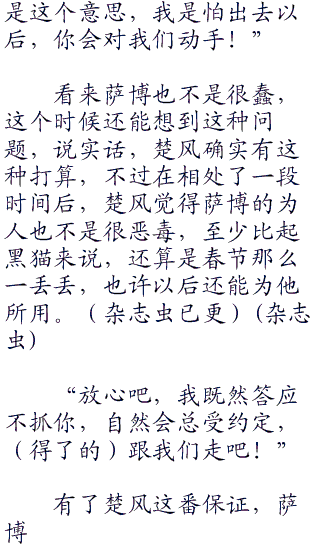 是这个意思，我是怕出去以
后，你会对我们动手！”
看来萨博也不是很蠢，
这个时候还能想到这种问
题，说实话，楚风确实有这
种打算，不过在相处了一段
时间后，楚风觉得萨博的为
人也不是很恶毒，至少比起
黑猫来说，还算是春节那么
一丢丢，也许以后还能为他
所用。（杂志虫已更）(杂志
虫)
“放心吧，我既然答应
不抓你，自然会总受约定，
（得了的）跟我们走吧！”
有了楚风这番保证，萨
博